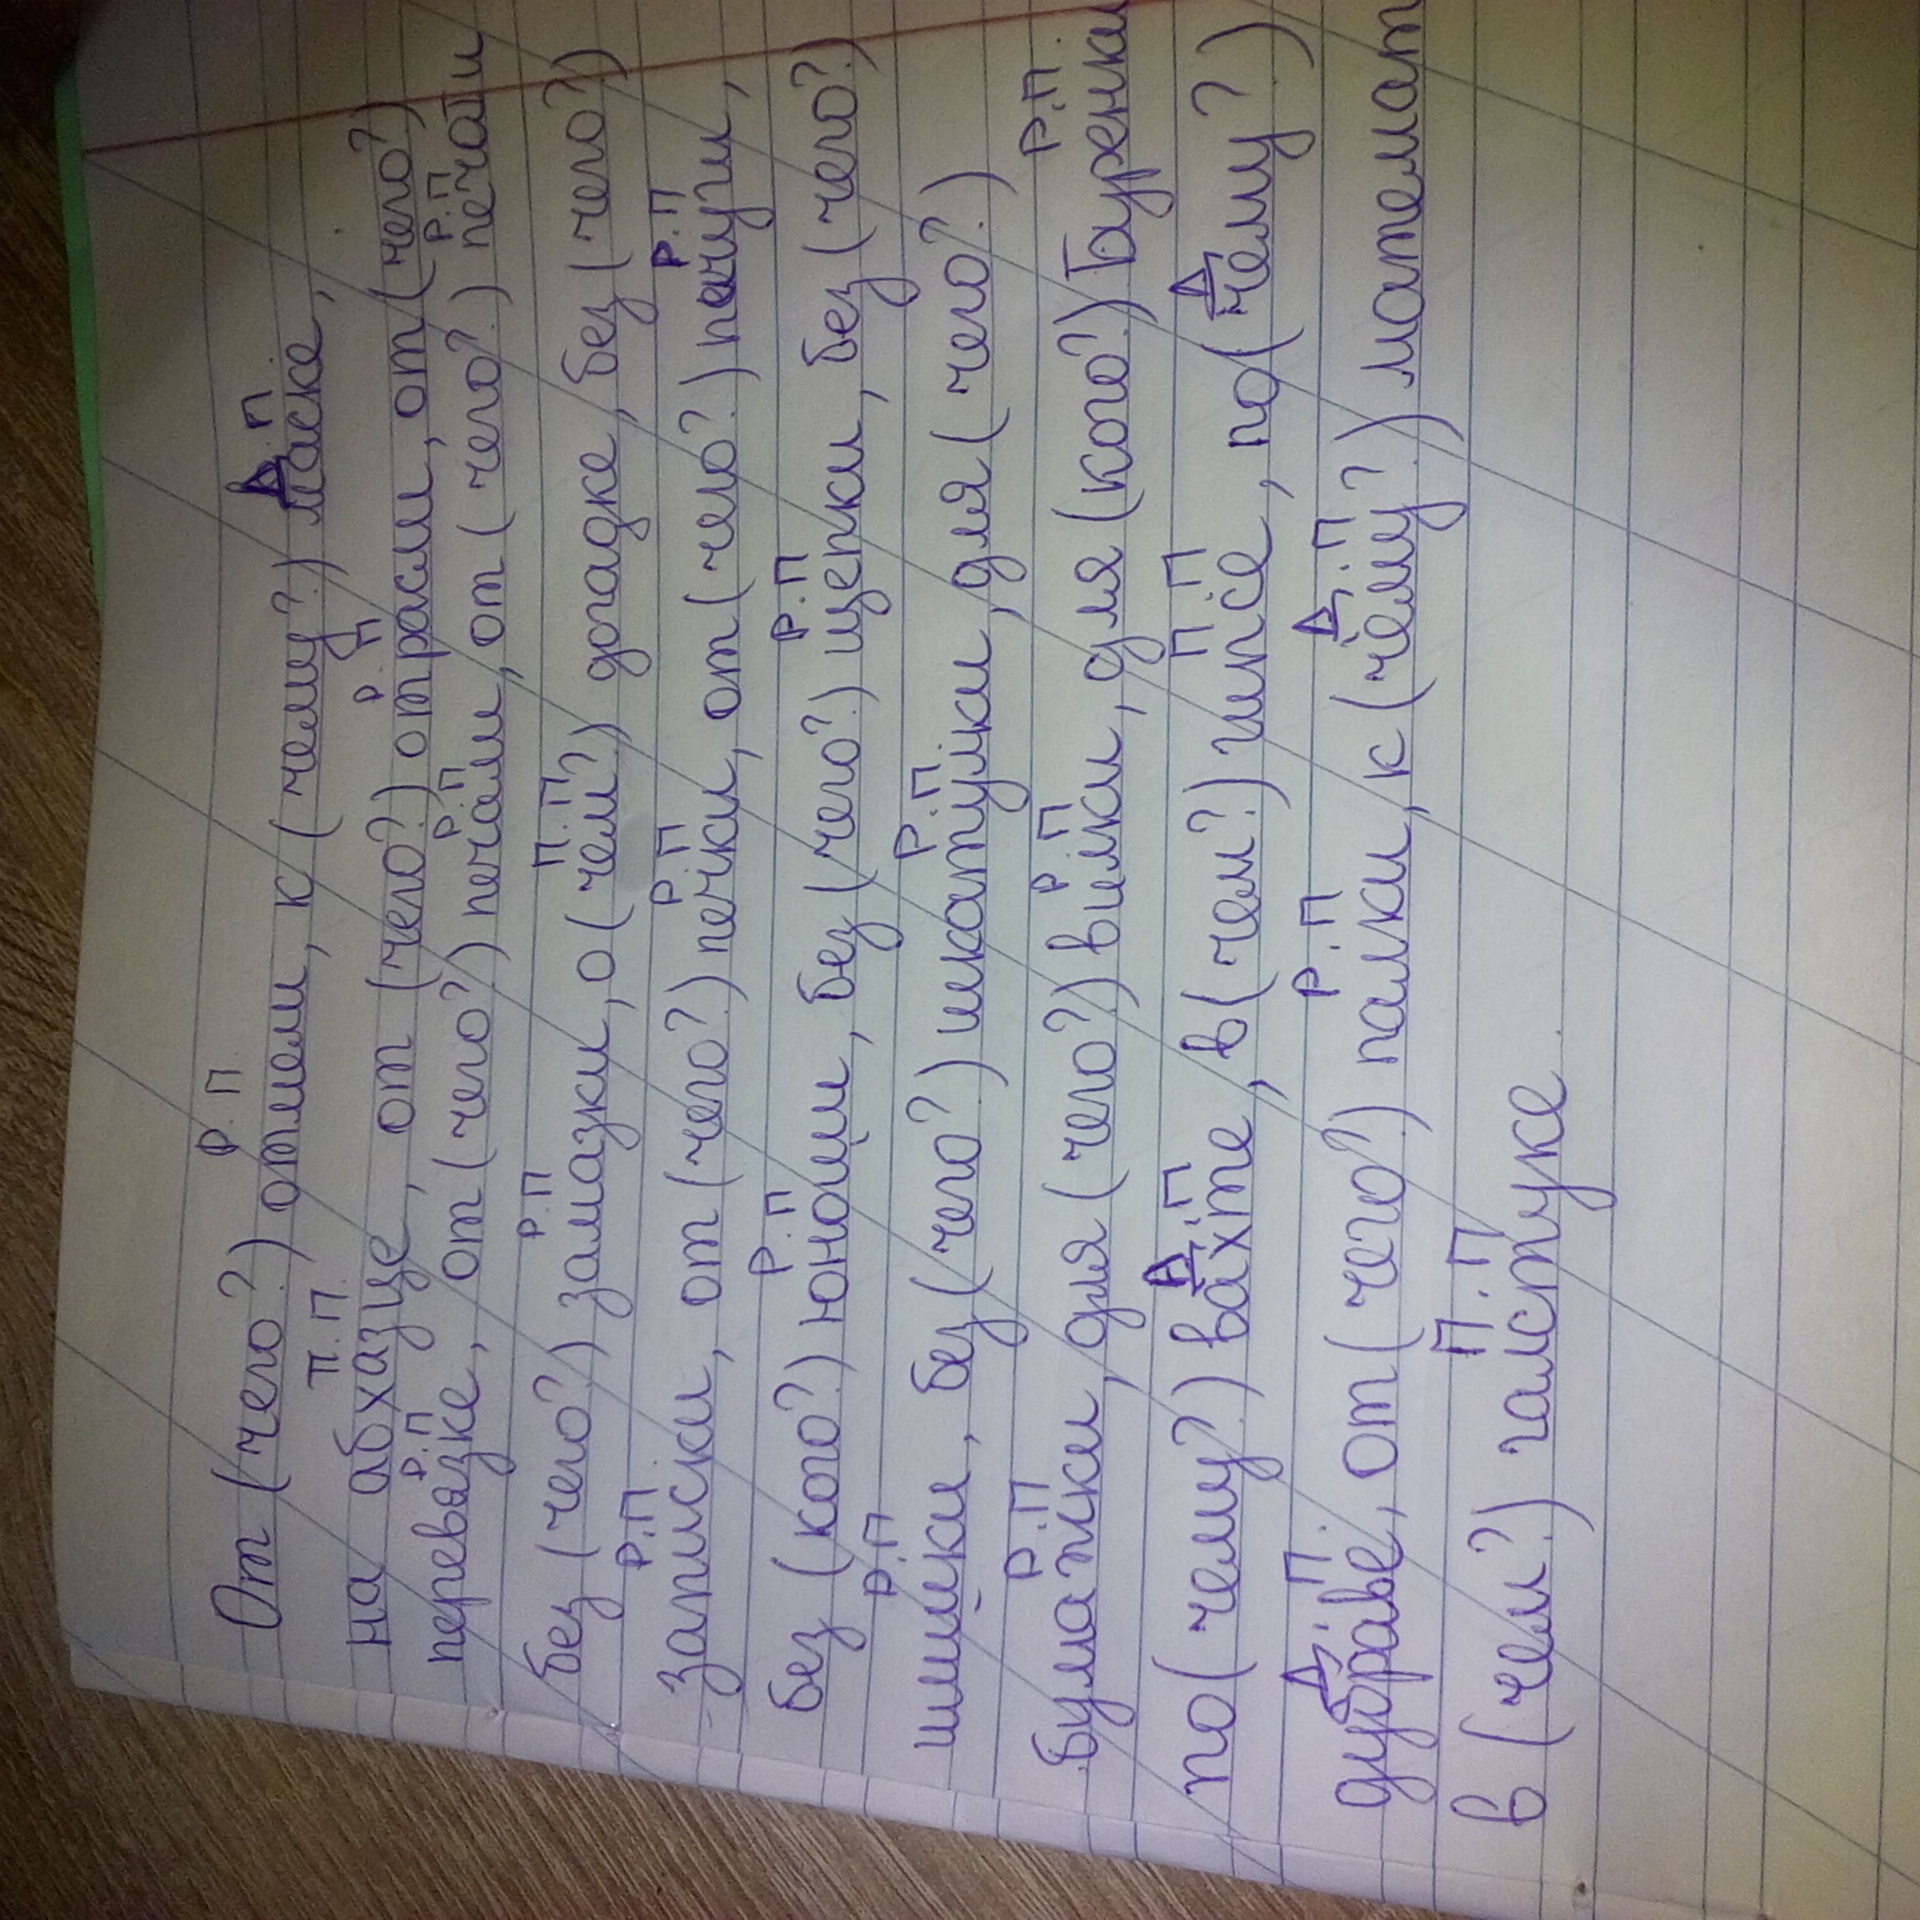 Р.П
От (чего?) отмели, к (чему?) маске,
Д.П
П.П. Р.П
на абхазце, от (чего?) отрасли, от (чего?)
Р.П Р.П Р.П
перевязке, от (чего?) печали, от (чего?) печати
Р.П П.П
без (чего?) замазки, о (чем?) догадке, без (чего?)
Р.П Р.П Р.П
записки, от (чего?) печки, от (чего?) пачуги,
Р.П Р.П
без (кого?) юноши, без (чего?) щепки, без (чего?)
Р.П Р.П
шишки, без (чего?) шкатулки, для (чего?)
Р.П Р.П Р.П
бумажки, для (чего?) вилки, для (кого?) Буренки
Д.П П.П Д
по (чему?) вахте, в (чем?) гипсе, по (чему?)
Д.П. Р.П Д.П
дубраве, от (чего?) палки, к (чему?) математ
П.П
в (чем?) галстуке.